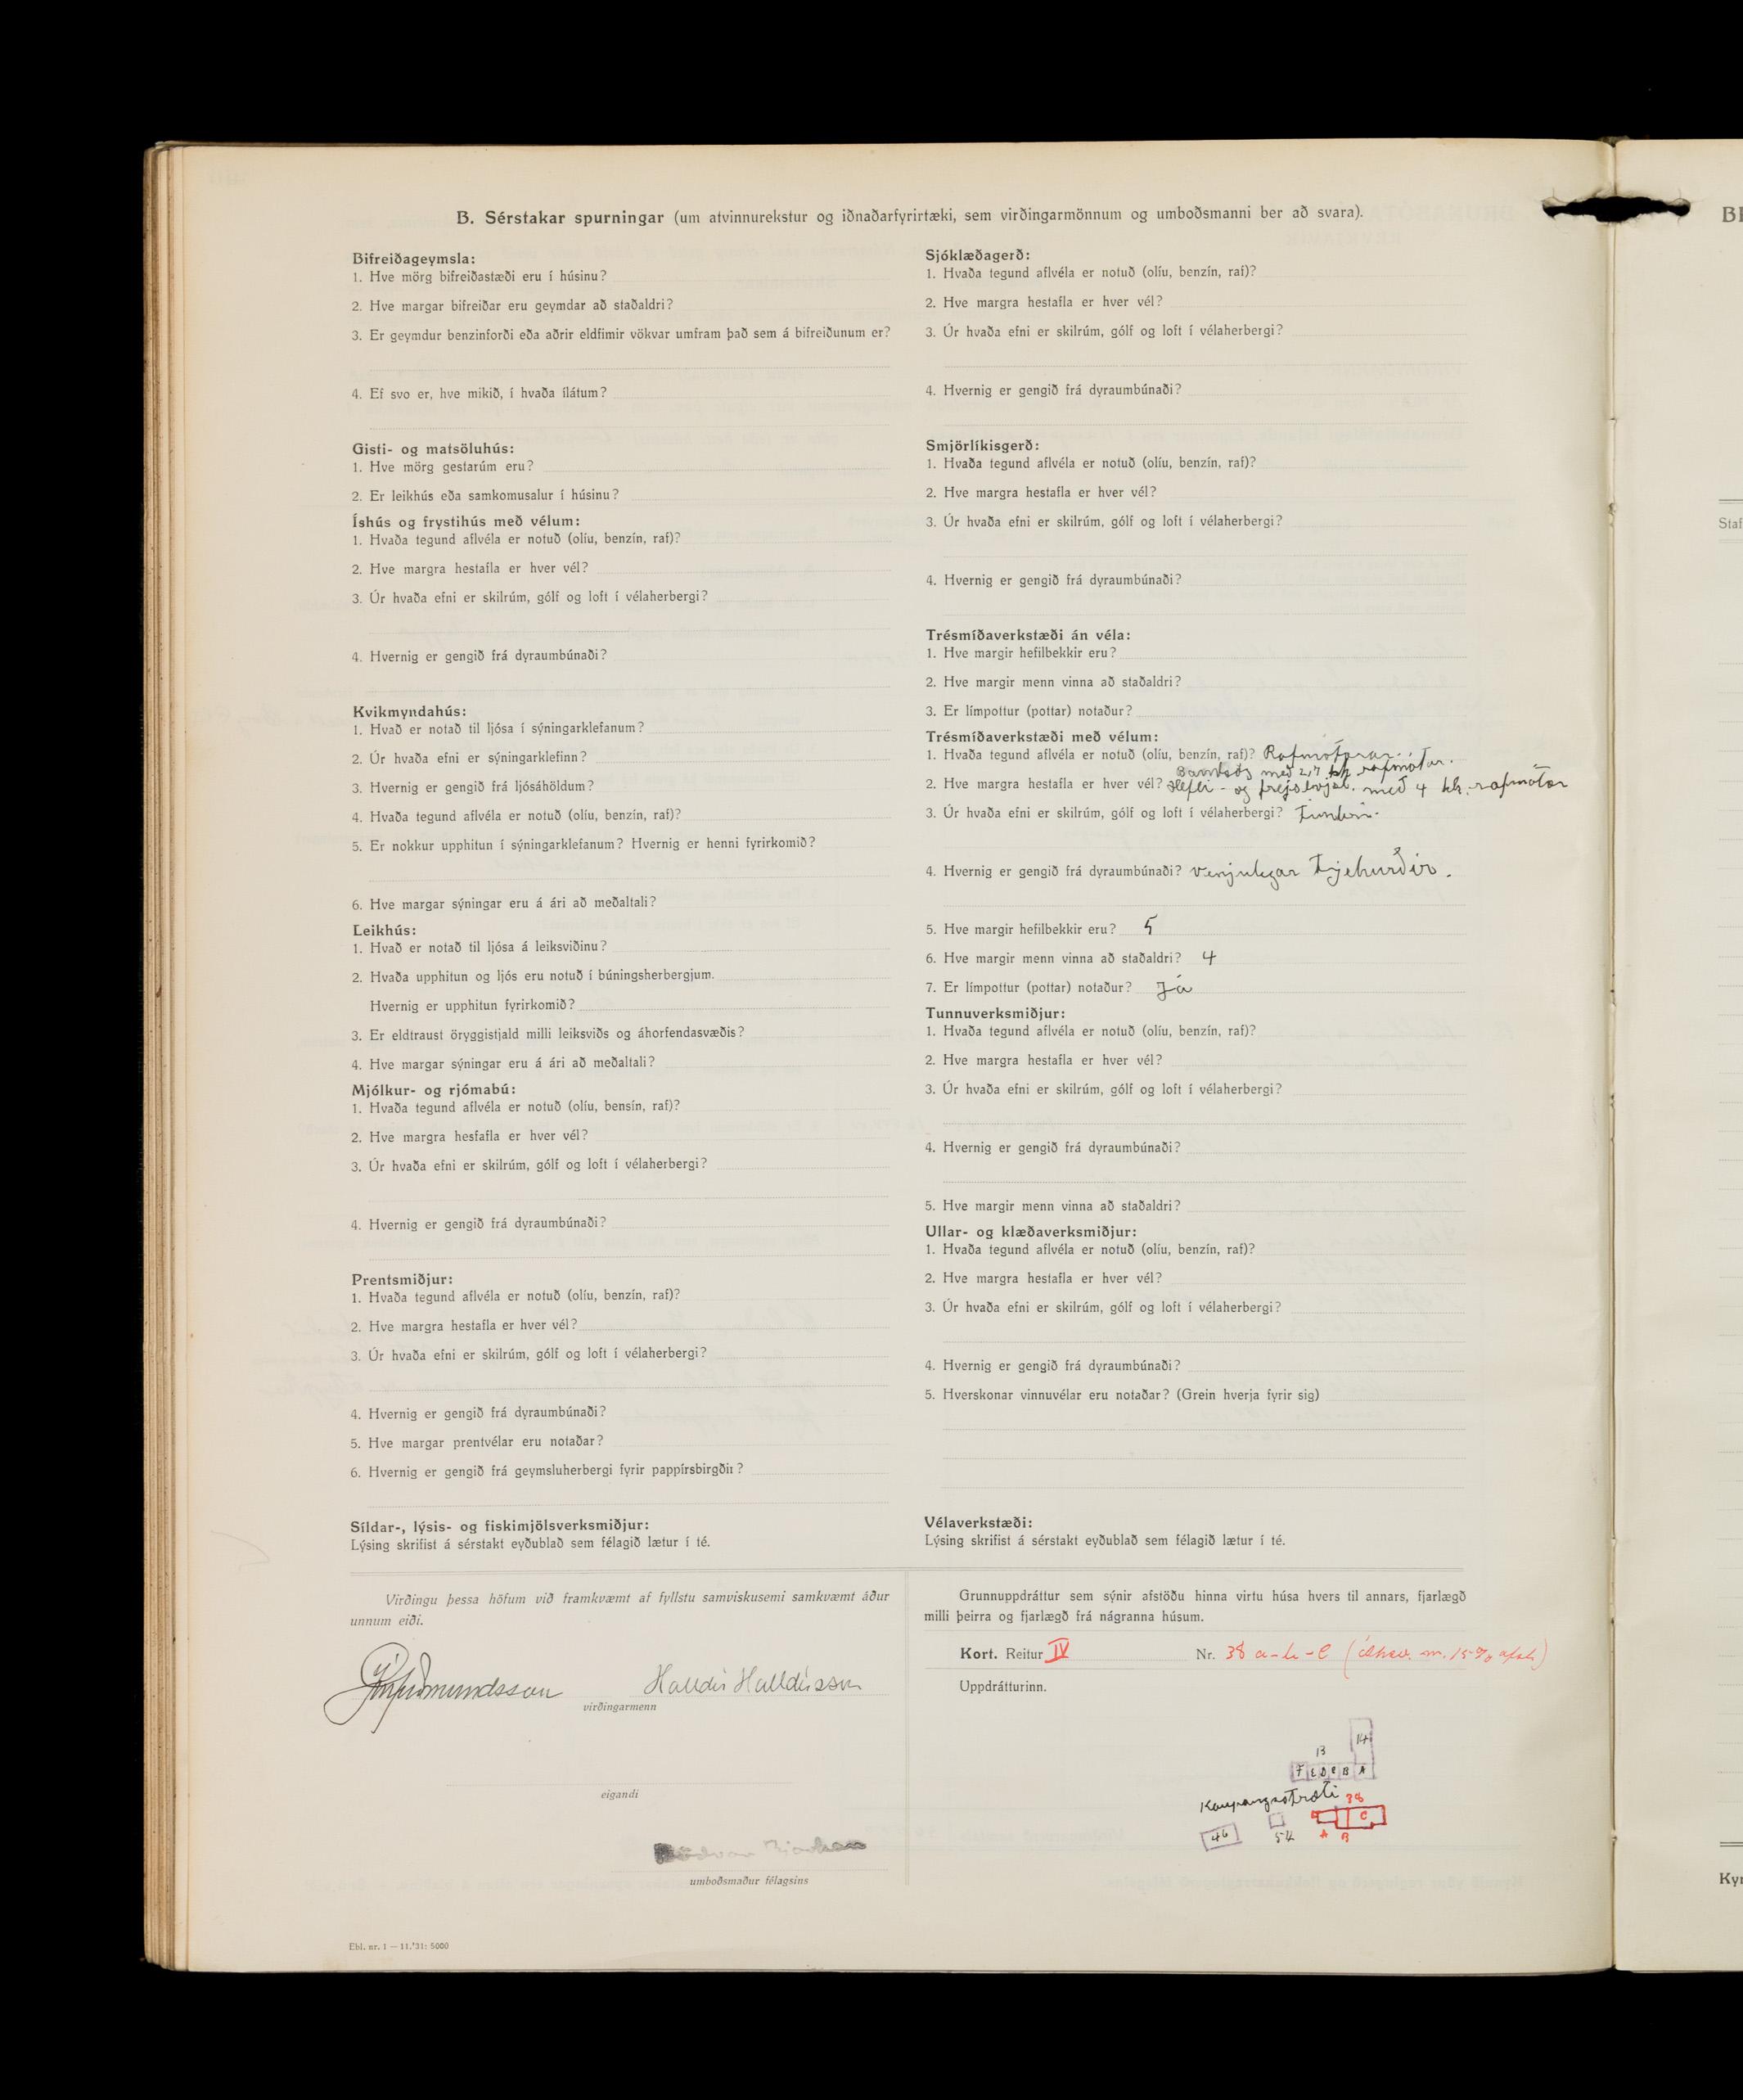 B. Sérstakar spurningar (um atvinnurekstur og iðnaðarfyrirtæki, sem virðingarmönnum og umboðsmanni ber að svara).
Bifreiðageymsla:
1. Hve mörg bifreiðastæði eru í húsinu?
2. Hve margar bifreiðar eru geymdar að staðaldri?
3. Er geymdur benzinforði eða aðrir eldfimir vökvar umfram það sem á bifreiðunum er?
4. Ef svo er, hve mikið, í hvaða ílátum?
Gisti- og matsöluhús:
1. Hve mörg gestarúm eru?
2. Er leikhús eða samkomusalur í húsinu?
Íshús og frystihús með vélum:
1. Hvaða tegund aflvéla er notuð (olíu, benzín, raf)?
2. Hve margra hestafla er hver vél?
3. Úr hvaða efni er skilrúm, gólf og loft í vélaherbergi?
4. Hvernig er gengið frá dyraumbúnaði?
Kvikmyndahús:
1. Hvað er notað til ljósa í sýningarklefanum?
2. Úr hvaða efni er sýningarklefinn?
3. Hvernig er gengið frá ljósáhöldum?
4. Hvaða tegund aflvéla er notuð (olíu, benzín, raf)?
5. Er nokkur upphitun í sýningarklefanum? Hvernig er henni fyrirkomið?
6. Hve margar sýningar eru á ári að meðaltali?
Leikhús:
1. Hvað er notað til ljósa á leiksviðinu?
2. Hvaða upphitun og ljós eru notuð í búningsherbergjum.
Hvernig er upphitun fyrirkomið?
3. Er eldtraust öryggistjald milli leiksviðs og áhorfendasvæðis?
4. Hve margar sýningar eru á ári að meðaltali?
Mjólkur- og rjómabú:
1. Hvaða tegund aflvéla er notuð (olíu, bensín, raf)?
2. Hve margra hesfafla er hver vél?
3. Úr hvaða efni er skilrúm, gólf og loft í vélaherbergi?
4. Hvernig er gengið frá dyraumbúnaði?
Prentsmiðjur:
1. Hvaða tegund aflvéla er notuð (olíu, benzín, raf)?
2. Hve margra hestafla er hver vél?
3. Úr hvaða efni er skilrúm, gólf og loft í vélaherbergi?
4. Hvernig er gengið frá dyraumbúnaði?
5. Hve margar prentvélar eru notaðar?
6. Hvernig er gengið frá geymsluherbergi fyrir pappírsbirgðir?
Síldar-, lýsis- og fiskimjölsverksmiðjur:
Lýsing skrifist á sérstakt eyðublað sem félagið lætur í té.
Sjóklæðagerð:
1. Hvaða tegund aflvéla er notuð (olíu, benzín, raf)?
2. Hve margra hestafla er hver vél?
3. Úr hvaða efni er skilrúm, gólf og loft í vélaherbergi?
4. Hvernig er gengið frá dyraumbúnaði?
Smjörlíkisgerð:
1. Hvaða tegund aflvéla er notuð (olíu, benzín, raf)?
2. Hve margra hestafla er hver vél?
3. Úr hvaða efni er skilrúm, gólf og loft í vélaherbergi?
4. Hvernig er gengið frá dyraumbúnaði?
Trésmíðaverkstæði án véla:
1. Hve margir hefilbekkir eru?
2. Hve margir menn vinna að staðaldri?
3. Er límpottur (pottar) notaður?
Trésmíðaverkstæði með vélum:
1. Hvaða tegund aflvéla er notuð (olíu, benzín, raf)? Rafmótorar.
Bandsög með 2,7 hk rafmótor.
2. Hve margra hestafla er hver vél? Hefli- og með 4 hk. rafmótor
3. Úr hvaða efni er skilrúm, gólf og loft í vélaherbergi? Timbri.
4. Hvernig er gengið frá dyraumbúnaði? venjulegar trjehurðir.
5. Hve margir hefilbekkir eru? 5
6. Hve margir menn vinna að staðaldri? 4
7. Er límpottur (pottar) notaður? Já
Tunnuverksmiðjur:
1. Hvaða tegund aflvéla er notuð (olíu, benzín, raf)?
2. Hve margra hestafla er hver vél?
3. Úr hvaða efni er skilrúm, gólf og loft í vélaherbergi?
4. Hvernig er gengið frá dyraumbúnaði?
5. Hve margir menn vinna að staðaldri?
Ullar- og klæðaverksmiðjur:
1. Hvaða tegund aflvéla er notuð (olíu, benzín, raf)?
2. Hve margra hestafla er hver vél?
3. Úr hvaða efni er skilrúm, gólf og loft í vélaherbergi?
4. Hvernig er gengið frá dyraumbúnaði?
5. Hverskonar vinnuvélar eru notaðar? (Grein hverja fyrir sig)
Vélaverkstæði:
Lýsing skrifist á sérstakt eyðublað sem félagið lætur í té.
Virðingu þessa höfum við framkvæmt af fyllstu samviskusemi samkvæmt áður
unnum eiði.
Halldór Halldórsson
virðingarmenn
eigandi
umboðsmaður félagsins
Ebl. nr. 1 — 11.'31: 5000
Grunnuppdráttur sem sýnir afstöðu hinna virtu húsa hvers til annars, fjarlægð
milli þeirra og fjarlægð frá nágranna húsum.
Kort. Reitur IV Nr. 38 a-b-c
Uppdrátturinn.
14
13
F E D C B A
Kaupangsstræti 38
C
46 52 A B
BR
Staf
Kyn